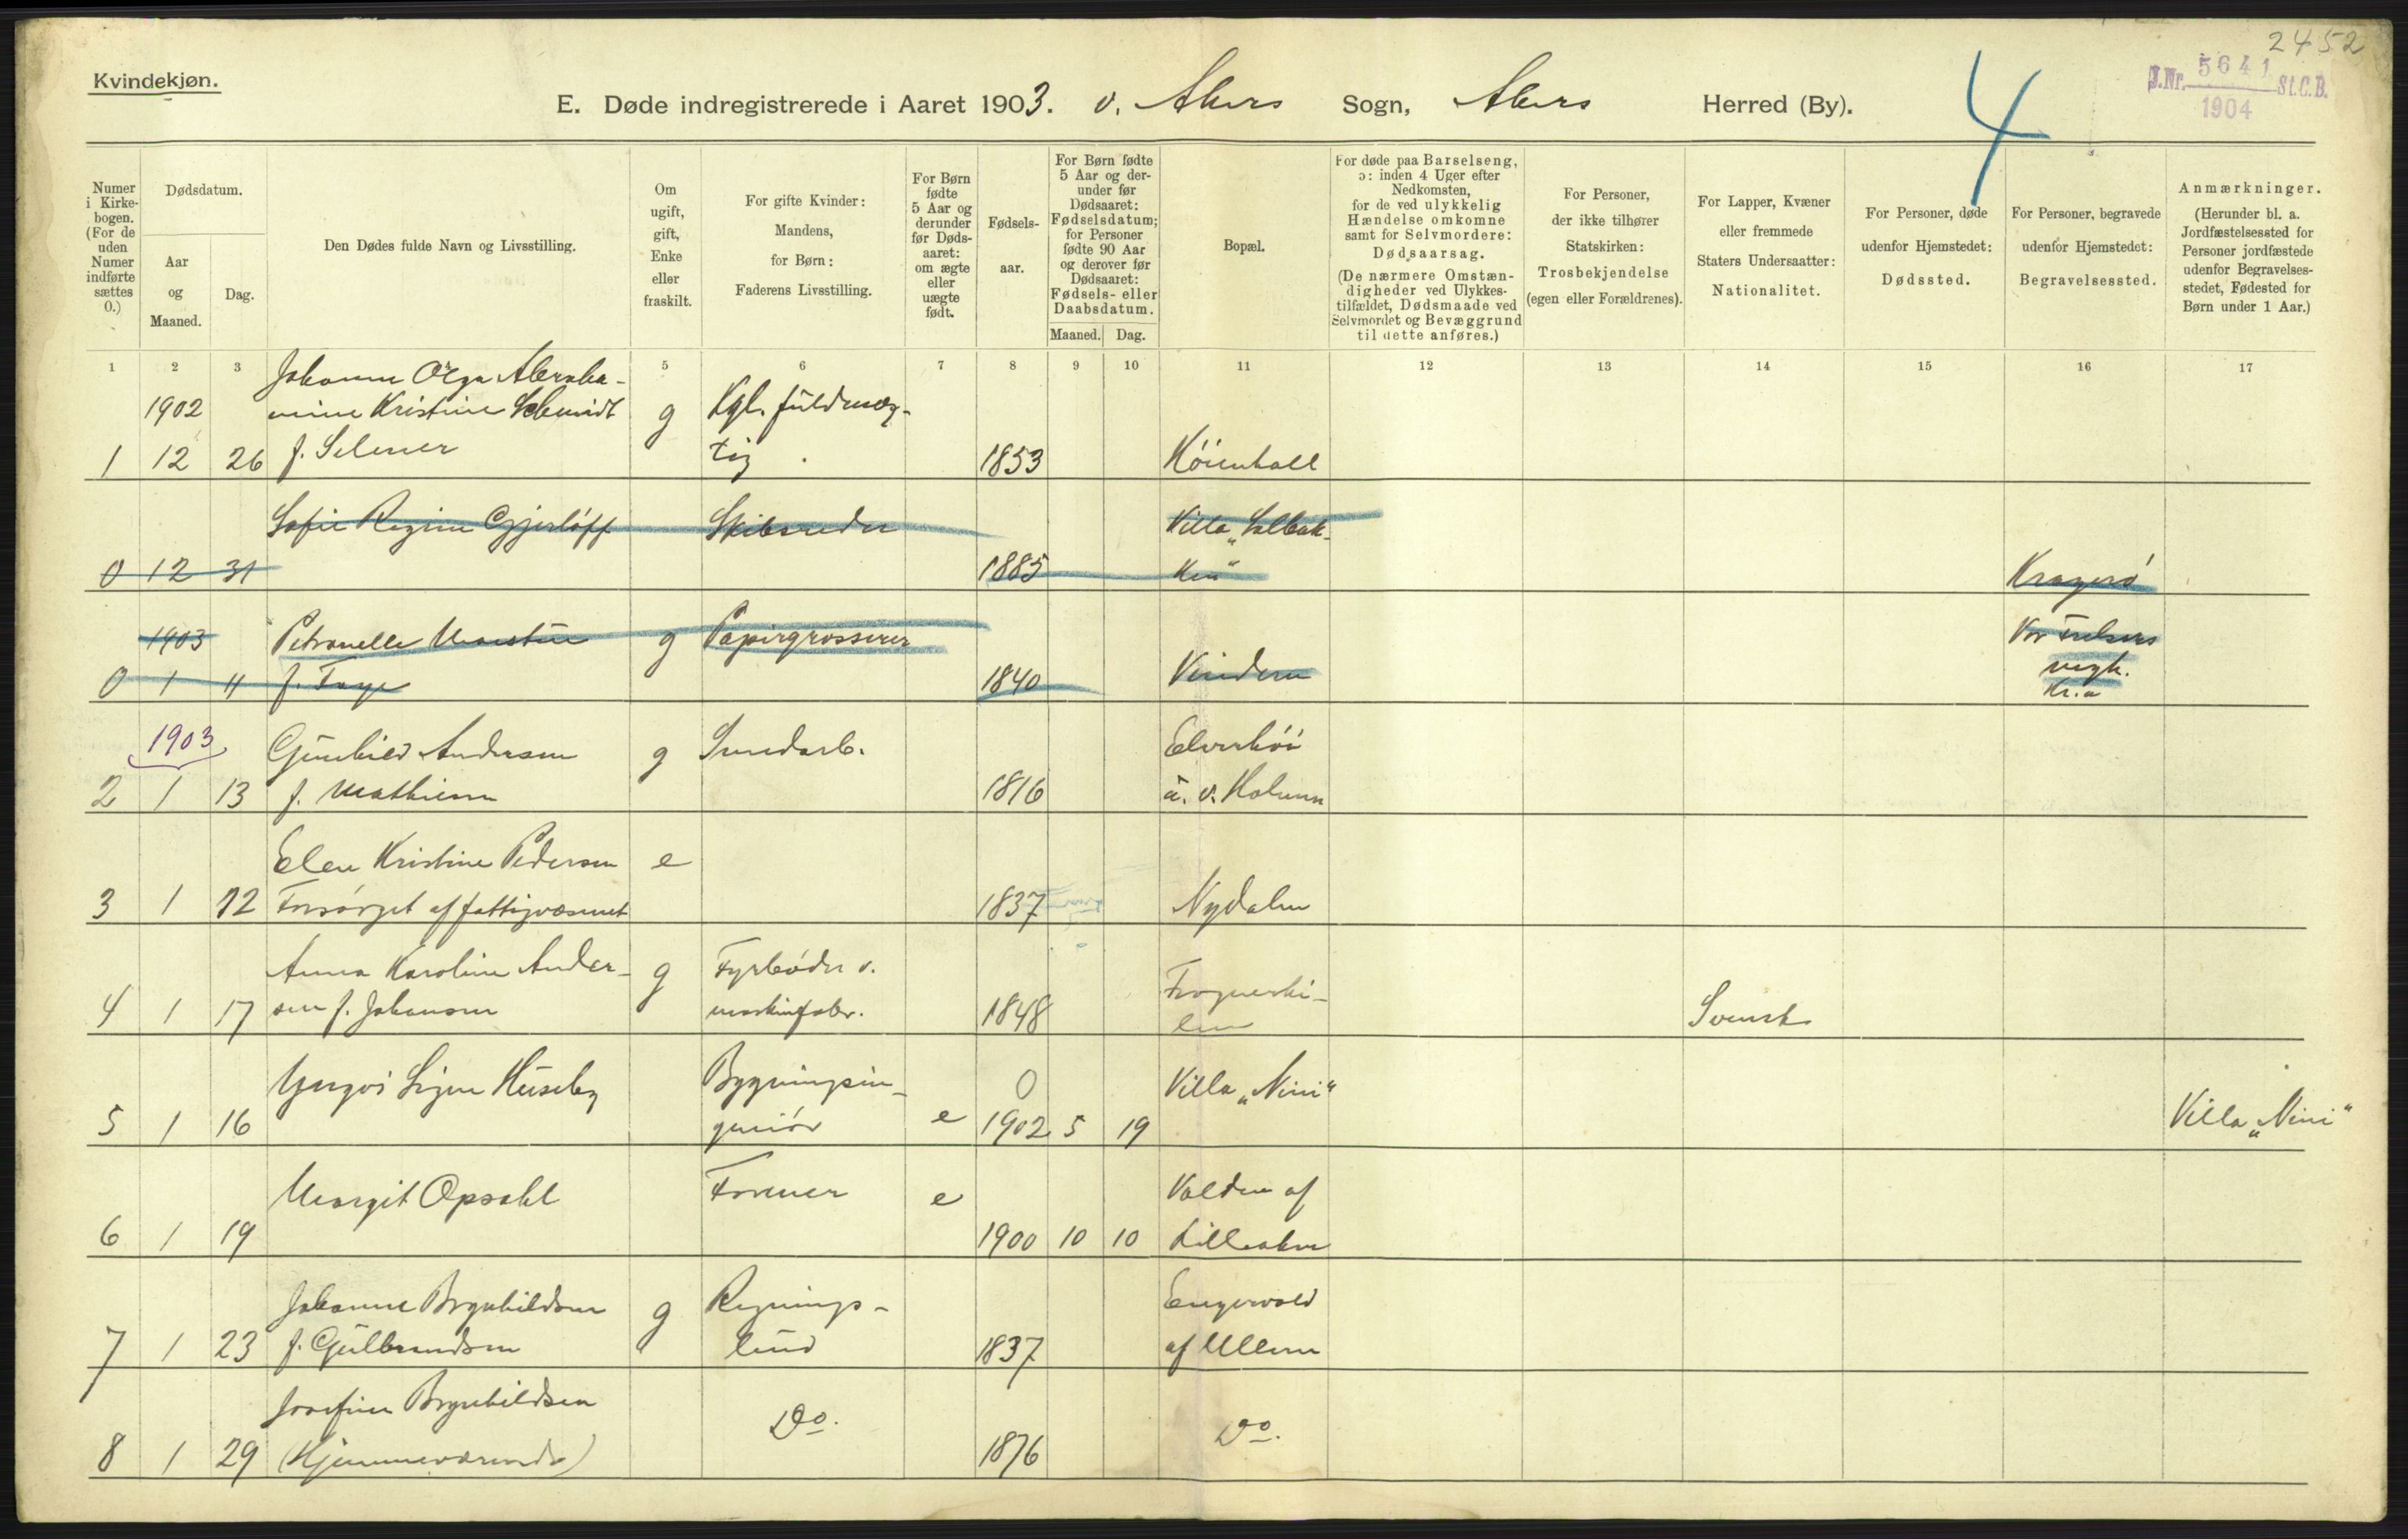 2452
Kvindekjøn.
J.Nr. 5641 St.C.B.
1904
4
E. Døde indregistrerede i Aaret 1903. v. Akers Sogn, Akers Herred (By).
Numer
i Kirke-
bogen.
(For de
uden
Numer
indførte
sættes
0.)
Dødsdatum.
Aar
og
Maaned.
Dag.
Den Dødes fulde Navn og Livsstilling.
Om
ugift,
gift,
Enke
eller
fraskilt.
For gifte Kvinder:
Mandens,
for Børn:
Faderens Livsstilling.
For Børn
fødte
5 Aar og
derunder
før Døds-
aaret:
om ægte
eller
uægte
født.
Fødsels-
aar.
For Børn fødte
5 Aar og der-
under før
Dødsaaret:
Fødselsdatum;
for Personer
fødte 90 Aar
og derover før
Dødsaaret:
Fødsels- eller
Daabsdatum.
Maaned. Dag.
Bopæl.
For døde paa Barselseng,
ɔ: inden 4 Uger efter
Nedkomsten,
for de ved ulykkelig
Hændelse omkomne
samt for Selvmordere:
Dødsaarsag.
(De nærmere Omstæn-
digheder ved Ulykkes-
tilfældet, Dødsmaade ved
Selvmordet og Bevæggrund
til dette anføres.)
For Personer,
der ikke tilhører
Statskirken:
Trosbekjendelse
(egen eller Forældrenes).
For Lapper, Kvæner
eller fremmede
Staters Undersaatter:
Nationalitet.
For Personer, døde
udenfor Hjemstedet:
Dødssted.
For Personer, begravede
udenfor Hjemstedet:
Begravelsessted.
Anmærkninger.
(Herunder bl. a.
Jordfæstelsessted for
Personer jordfæstede
udenfor Begravelses-
stedet, Fødested for
Børn under 1 Aar.)
1 2 3 5 6 7 8 9 10 11 12 13 14 15 16 17
Johanne Olga Abraha-
1902 mine Kristine Schmidt g Kgl. fuldmæg-
1 12 26 f. Selmer tig 1853 Höienhall
Sofie Regine Gjerløff Skibsreder Villa „Solbak-
0 12 31 1885 ken“ Kragerö
1903 Petronelle g Papirgrosserer Vor Frelsers
0 1 11 f. Faye 1840 Vinderen
Kr.a
1903 Gunhild Andersen g Smedarb. Elverhöi
2 1 13 f. Mathisen 1816 u. v. Holmen
Elen Kristine Pedersen e
3 1 12 Forsörget af fattigvæsenet 1837 Nydalen
Anna Karoline Ander- g Fyrböder v.
4 1 17 sen f. Johansen maskinfabr. 1848 Frognerki-
len Svensk
Yngvi Signe Huseby Bygningsin- 0 Villa „Nini“
5 1 16 geniör e 1902 5 19 Villa „Nini“
Margit Opsahl Former e Volden af
6 1 19 1900 10 10 Lilleaker
Johanne Brynhildsen g Rejnings- Engervold
7 1 23 f. Gulbrandsen lund 1837 af Ullern
Josefine Brynhildsen Do. Do.
8 1 29 (Hjemmeværende) 1876